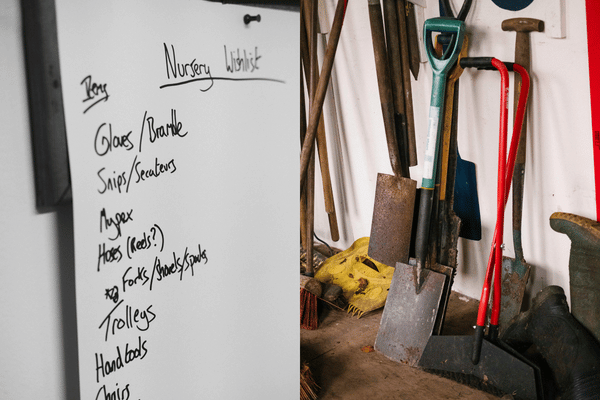 Nursery Wishlist
Items
Gloves/Bramble
Snips/Secateurs
Mypex
Hoses (Reels?)
Forks/shovels/spades
Trolleys
Handtools
Chairs